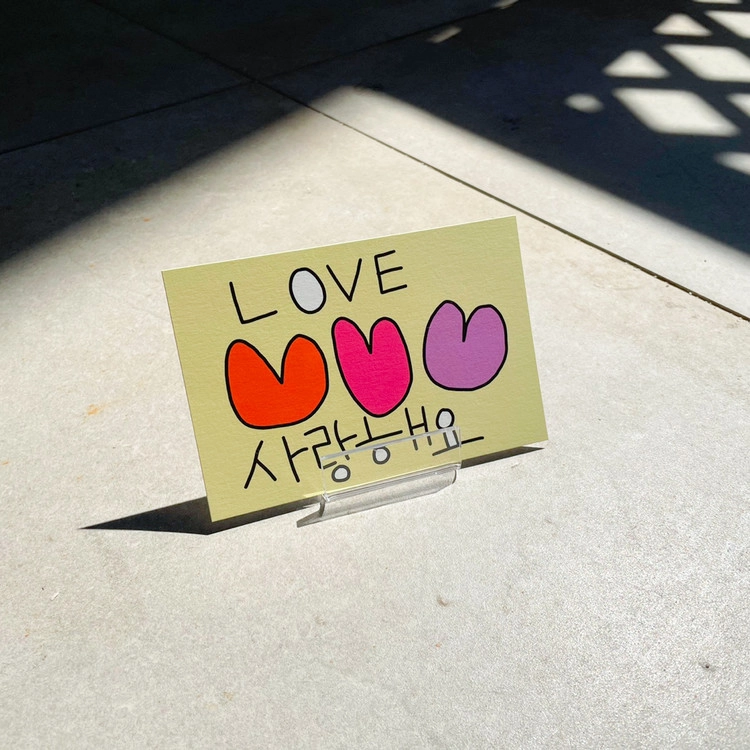 LOVE
사랑해요